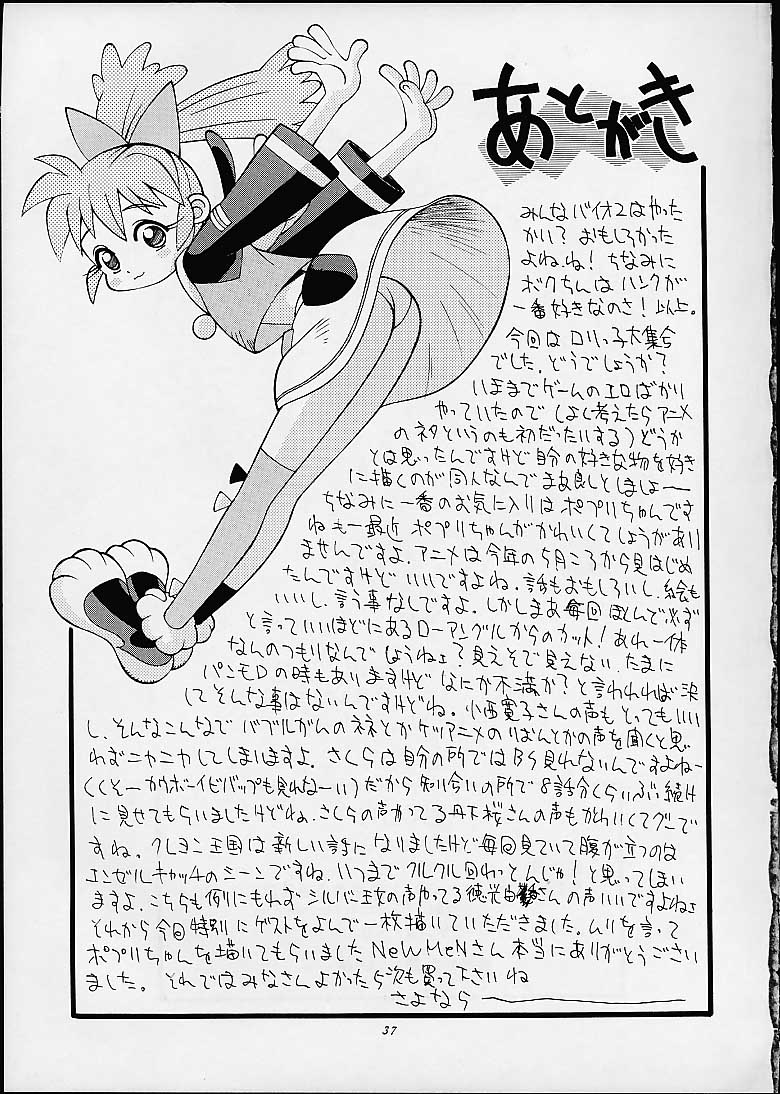 あとがき
みんなバイオ2はやった
かい?おもしろかった
よね、ね!ちなみに
ボクちんはハンクが
一番好きなのさ!以上。
今回はロリっ子大集合
でした。どうでしょうか?
いままでゲームのエロばかり
やっていたので(よく考えたらアニメ
のネタというのも初だったりする)どうか
とは思ったんですけど自分の好きな物を好き
に描くのが同人なんでまぁ良しとしましょー
ちなみに一番のお気に入りはポプリちゃんです
ねもー最近ポプリちゃんがかわいくてしょうがあり
ませんですよ。アニメは今年の5月ころから見はじめ
たんですけどいいですよね。話もおもしろいし、絵も
いいし、言う事なしですよ。しかしまあ毎回ほとんど必ず
と言っていいほどにあるローアングルからのカット!あれ一体
なんのつもりなんでしょうねェ?見えそで見えない、たまに
パンモロの時もありますけどなにか不満か?と言われれば決
してそんな事はないんですけどね。小西寛子さんの声もとってもいい
し、そんなこんなでバブルがんのネネとかケツアニメのりぼんとかの声を聞くと思
わずニヤニヤしてしまいますよ。さくらは自分の所ではBS見れないんですよねー
(くそーカウボーイビバップも見れなーい)だから知り合いの所で8話分くらいぶっ続け
に見せてもらいましたけどね、さくらの声やってる丹下桜さんの声もかわいくてグーで
すね。クレヨン王国は新しい話になりましたけど毎回見ていて腹が立つのは
エンゼルキャッチのシーンですね、いつまでクルクル回わっとんじゃ!と思ってしまい
ますよ、こちらも例にもれずシルバー王女の声やってる徳光由さんの声いいですよねェ
それから今回特別にゲストをよんで一枚描いていただきました。ムリを言って
ポプリちゃんを描いてもらいましたNeW MeNさん本当にありがとうござい
ました。それではみなさんよかったら次も買って下さいね
さよなら
37